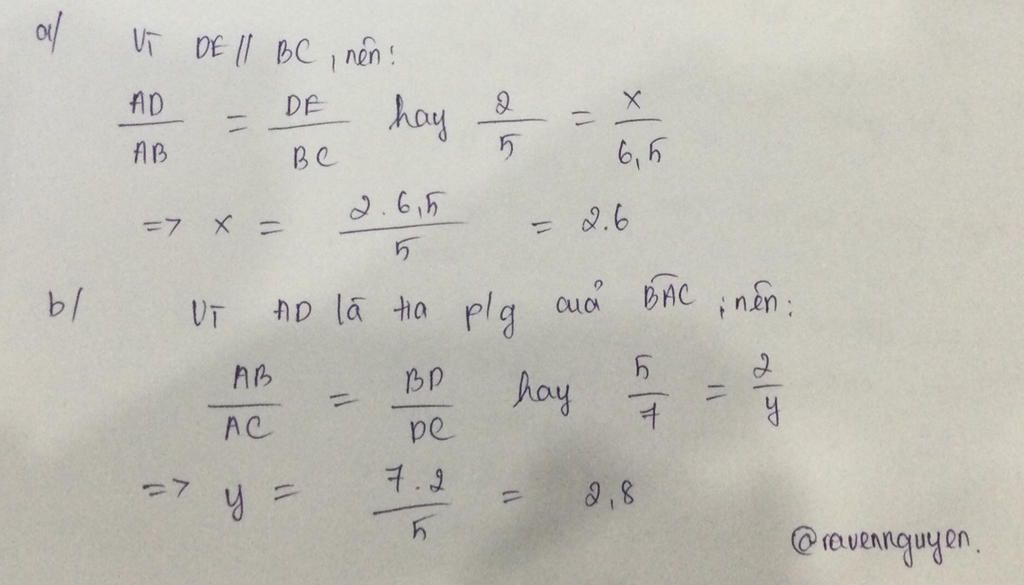 a/ Vì DE // BC, nên:
AD/AB = DE/BC hay 2/5 = x/6,5
=> x = 2.6,5/5 = 2.6
b/ Vì AD là tia p/g của BAC, nên:
AB/AC = BD/DC hay 5/7 = 2/y
=> y = 7.2/5 = 2,8
@ravennguyen.